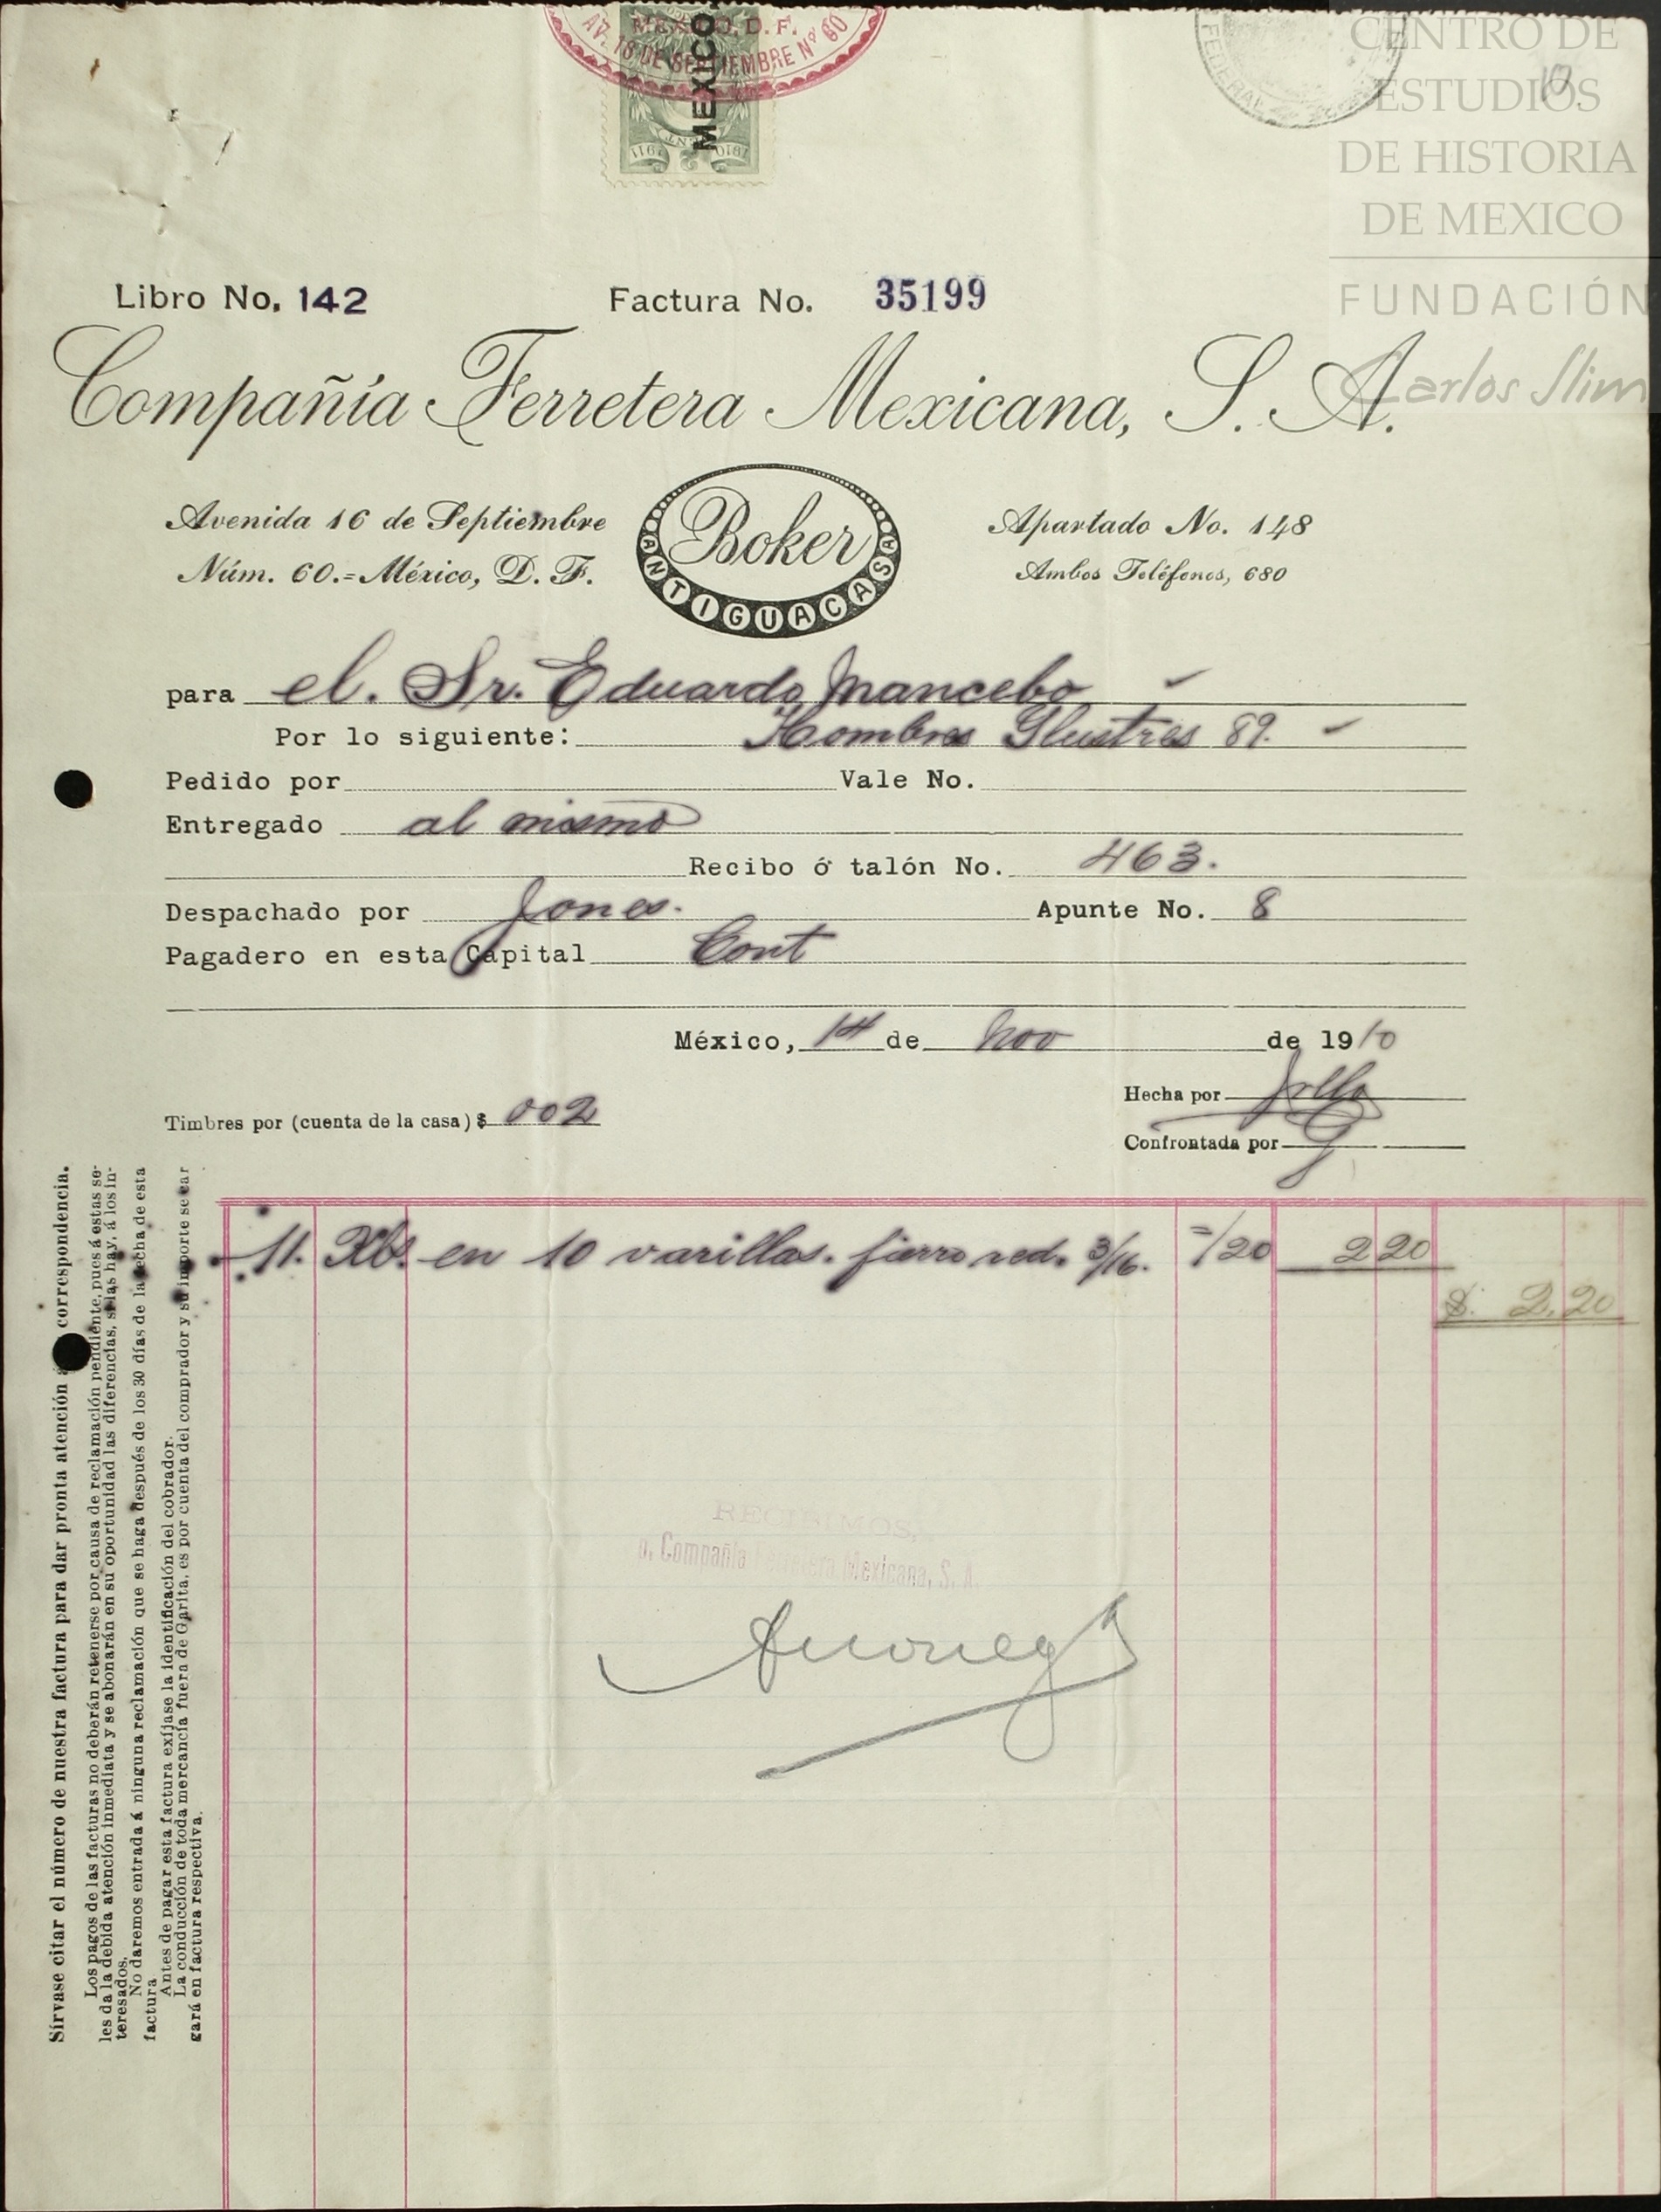 MEXICO, D. F.
AV. 16 DE SEPTIEMBRE Nº 60
MEXICO
1910 1911
FEDERAL
10
CENTRO DE
ESTUDIOS
DE HISTORIA
DE MEXICO
FUNDACIÓN
Carlos Slim
Libro No. 142 Factura No. 35199
Compañía Ferretera Mexicana, S. A.
Avenida 16 de Septiembre
Núm. 60.=México, D. F.
Boker
ANTIGUA CASA
Apartado No. 148
Ambos Teléfonos, 680
para el. Sr. Eduardo Mancebo
Por lo siguiente: Hombres Ilustres 89.
Pedido por Vale No.
Entregado al mismo
Recibo ó talón No. 463.
Despachado por Jones. Apunte No. 8
Pagadero en esta Capital Cont
México, 14 de Nov de 1910
Hecha por
Timbres por (cuenta de la casa) $ 002
Confrontada por
11. Lbs. en 10 varillas. fierro red. 3/16. =/20 2 20
$. 2.20
RECIBIMOS,
p. Compañía Ferretera Mexicana, S. A.
Sírvase citar el número de nuestra factura para dar pronta atención á correspondencia.
Los pagos de las facturas no deberán retenerse por causa de reclamación pendiente, pues á estas se-
les da la debida atención inmediata y se abonarán en su oportunidad las diferencias, si las hay, á los in-
teresados.
No daremos entrada á ninguna reclamación que se haga después de los 30 días de la fecha de esta
factura
Antes de pagar esta factura exíjase la identificación del cobrador.
La conducción de toda mercancía fuera de Garita, es por cuenta del comprador y su importe se car
gará en factura respectiva.